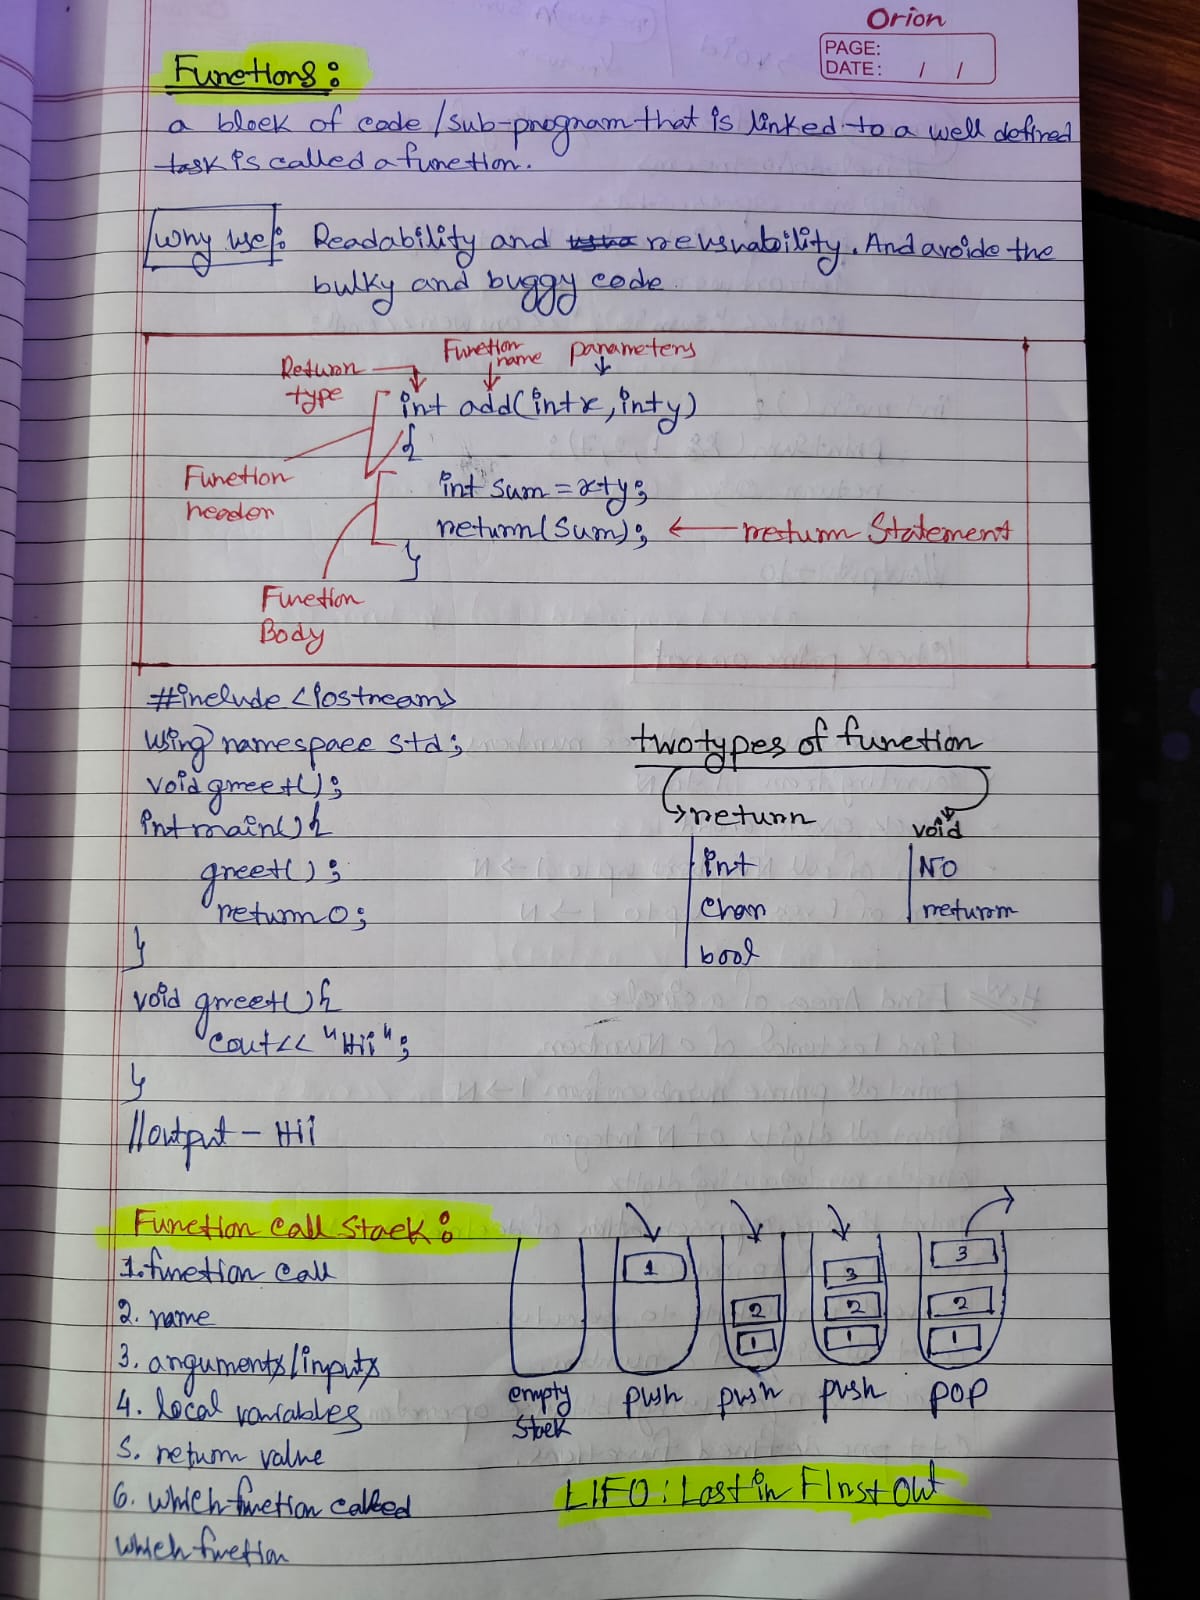 Orion
PAGE:
DATE: / /
Functions:
a block of code /sub-program that is linked to a well defined
task is called a function.
Why use: Readability and reusuability. And avoide the
bulky and buggy code.
Return type
Function name
parameters
int add(int x, int y)
{
Function header
int sum = x+y;
return(sum); ← return Statement
}
Function Body
#include <iostream>
using namespace std;
void greet();
int main(){
greet();
return 0;
}
void greet(){
cout<< "Hii";
}
//output - Hii
two types of function
return
int
char
bool
void
NO
return
Function call Stack:
1. function call
2. name
3. arguments/inputs
4. local variables
5. return value
6. which function called
which function
1
2
1
3
2
1
3
2
1
empty stack
push
push
push
pop
LIFO: Last in FIrst Out